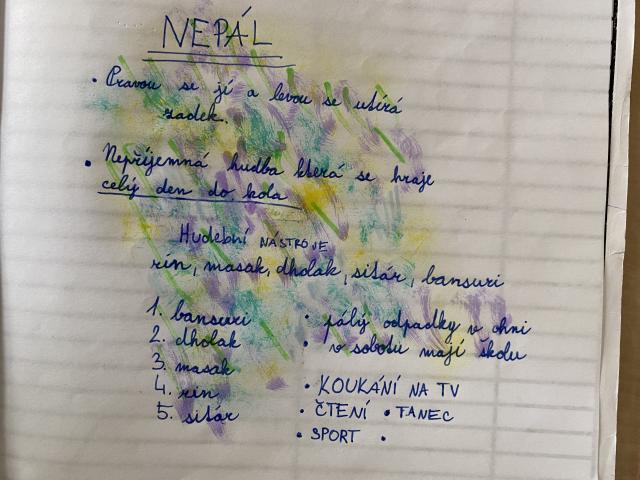 NEPÁL
• Pravou se jí a levou se utírá
zadek.
• Nepříjemná hudba která se hraje
celý den do kola
Hudební NÁSTROJE
rin, masak, dholak, sitár, bansuri
1. bansuri
2. dholak
3. masak
4. rin
5. sitár
• pálý odpadky v ohni
• v sobotu mají školu
• KOUKÁNÍ NA TV
• ČTENÍ • TANEC
• SPORT •